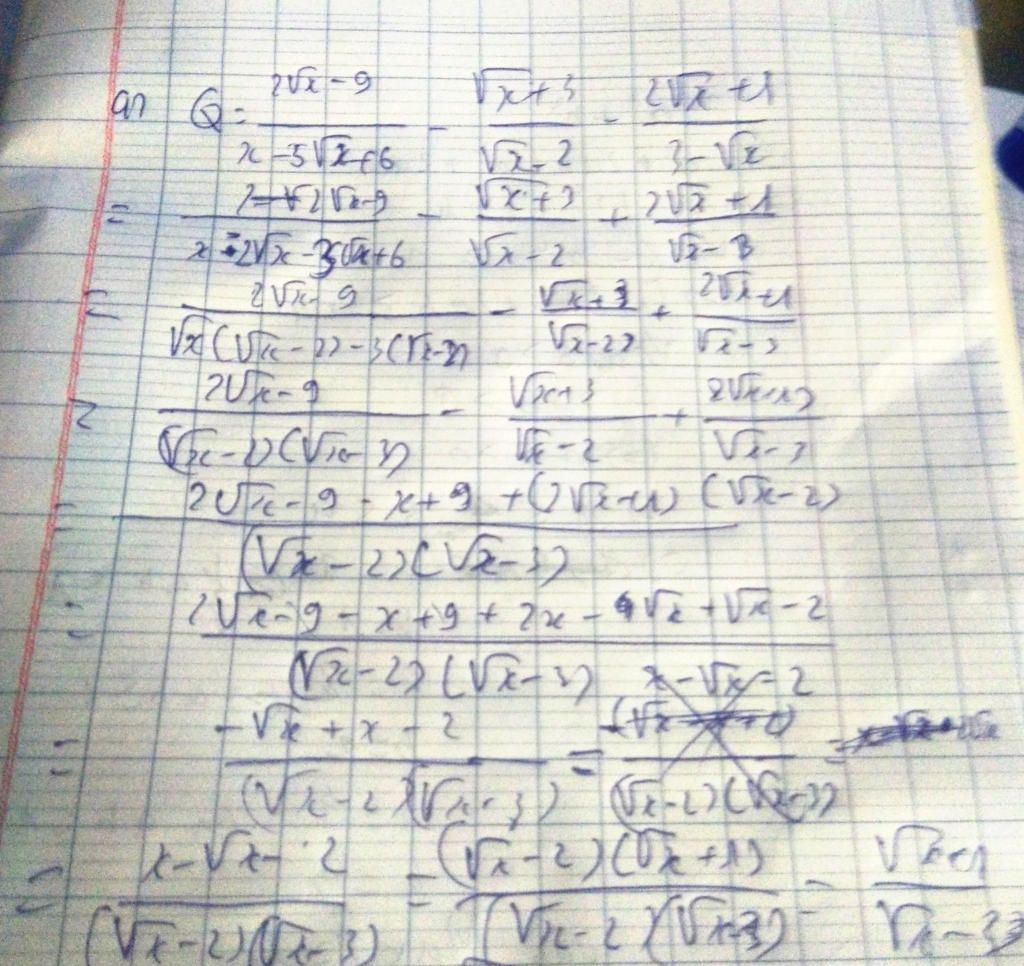 a) Q = (2√x - 9)/(x - 5√x + 6) - (√x + 3)/(√x - 2) - (2√x + 1)/(3 - √x)
= (2√x - 9)/(x - 2√x - 3√x + 6) - (√x + 3)/(√x - 2) + (2√x + 1)/(√x - 3)
= (2√x - 9)/(√x(√x - 2) - 3(√x - 2)) - (√x + 3)/(√x - 2) + (2√x + 1)/(√x - 3)
= (2√x - 9)/((√x - 2)(√x - 3)) - (√x + 3)/(√x - 2) + (2√x + 1)/(√x - 3)
= (2√x - 9 - x + 9 + (2√x + 1)(√x - 2))/((√x - 2)(√x - 3))
= (2√x - 9 - x + 9 + 2x - 4√x + √x - 2)/((√x - 2)(√x - 3))
= (-√x + x - 2)/((√x - 2)(√x - 3)) = (x - √x - 2)/((√x - 2)(√x - 3)) =
= (x - √x - 2)/((√x - 2)(√x - 3)) = ((√x - 2)(√x + 1))/((√x - 2)(√x - 3)) = (√x + 1)/(√x - 3)